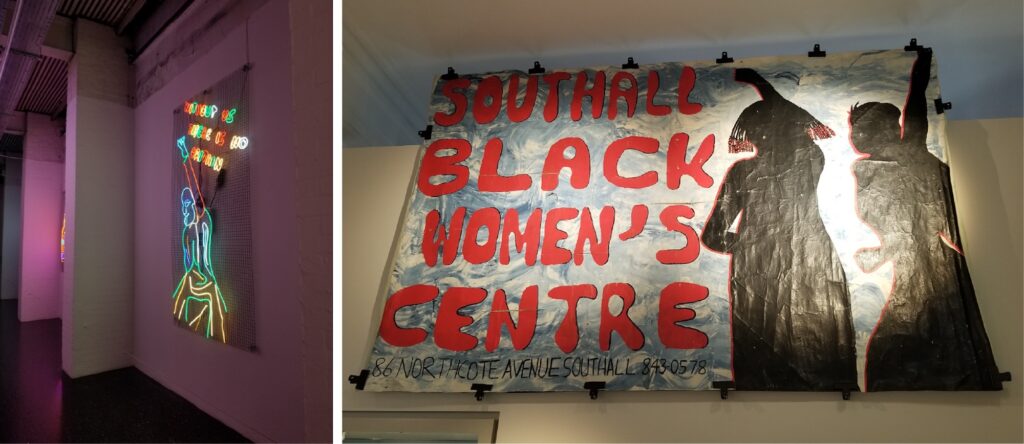 WITHOUT US
THERE IS NO
SOUTHALL
BLACK
WOMEN'S
CENTRE
86 NORTHCOTE AVENUE SOUTHALL 843·0578